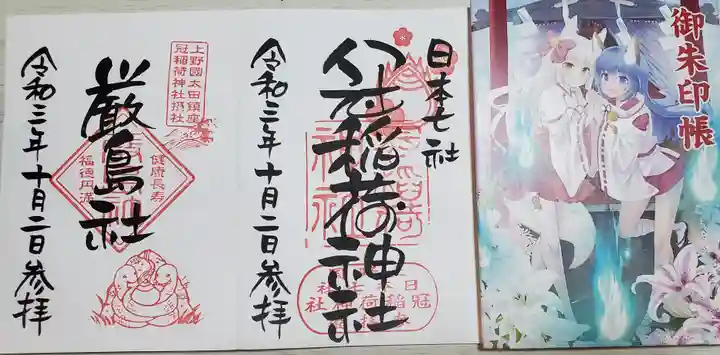 御朱印帳
日本七社
冠稲荷神社
令和三年十月二日参拝
上野國太田鎮座
冠稲荷神社摂社
厳島社
健康長寿
福徳円満
令和三年十月二日参拝